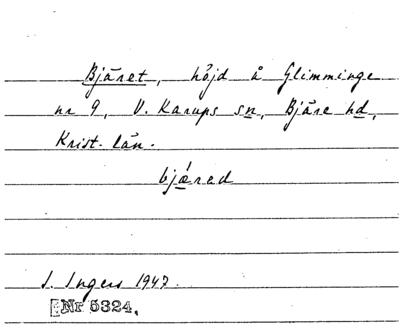 Bjäret, höjd å Glimminge
nr 9, V. Karups sn, Bjäre hd,
Krist. län.
bjǽrad
I. Ingers 1947.
Nr 5324.